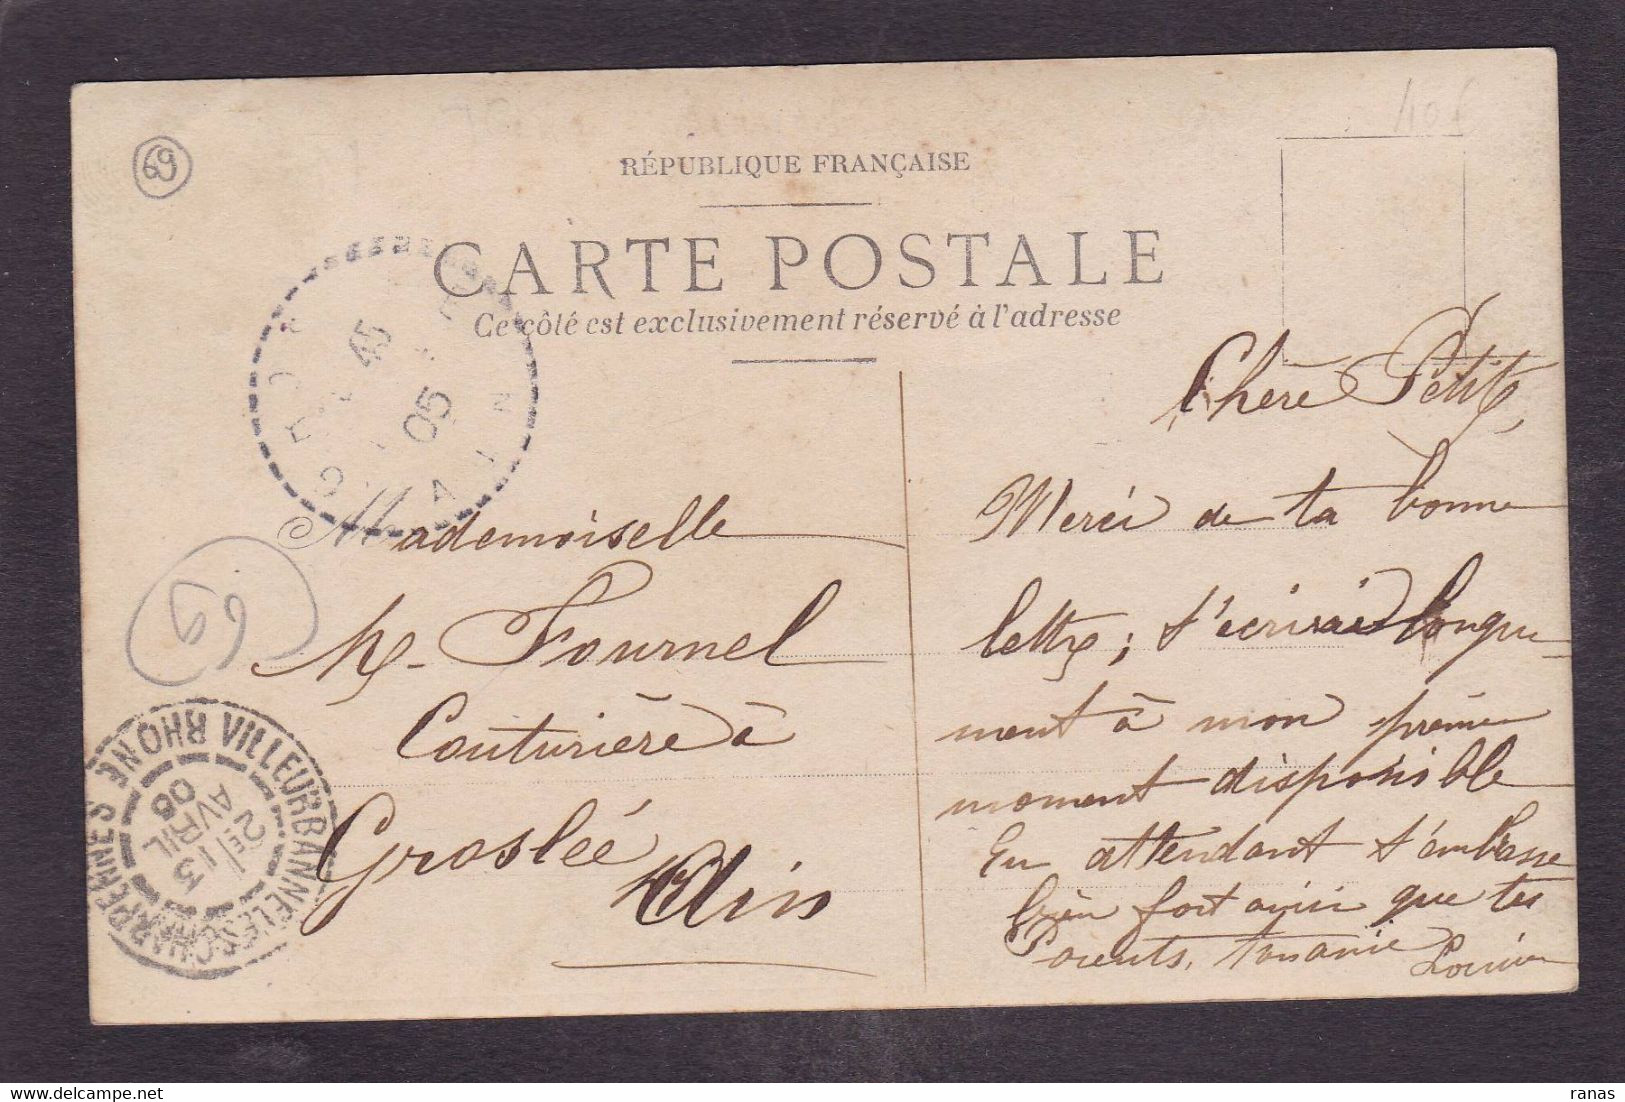 406
69
RÉPUBLIQUE FRANÇAISE
CARTE POSTALE
Ce côté est exclusivement réservé à l'adresse
GROSLÉE
45
05
AIN
Mademoiselle
M. Fournel
Couturière à
Groslée
Ain
69
VILLEURBANNE LES CHARPENNES RHONE
2E / 13
AVRIL
05
Chère Petite,
Merci de ta bonne
lettre; t'écrirai longue-
ment à mon premier
moment disponible
En attendant t'embrasse
bien fort ainsi que tes
Parents, ton amie
ranas
delcampe.net